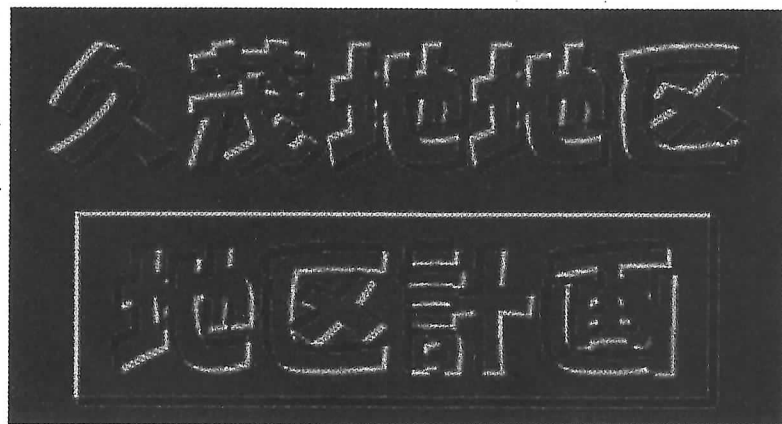 久茂地地区
地区計画